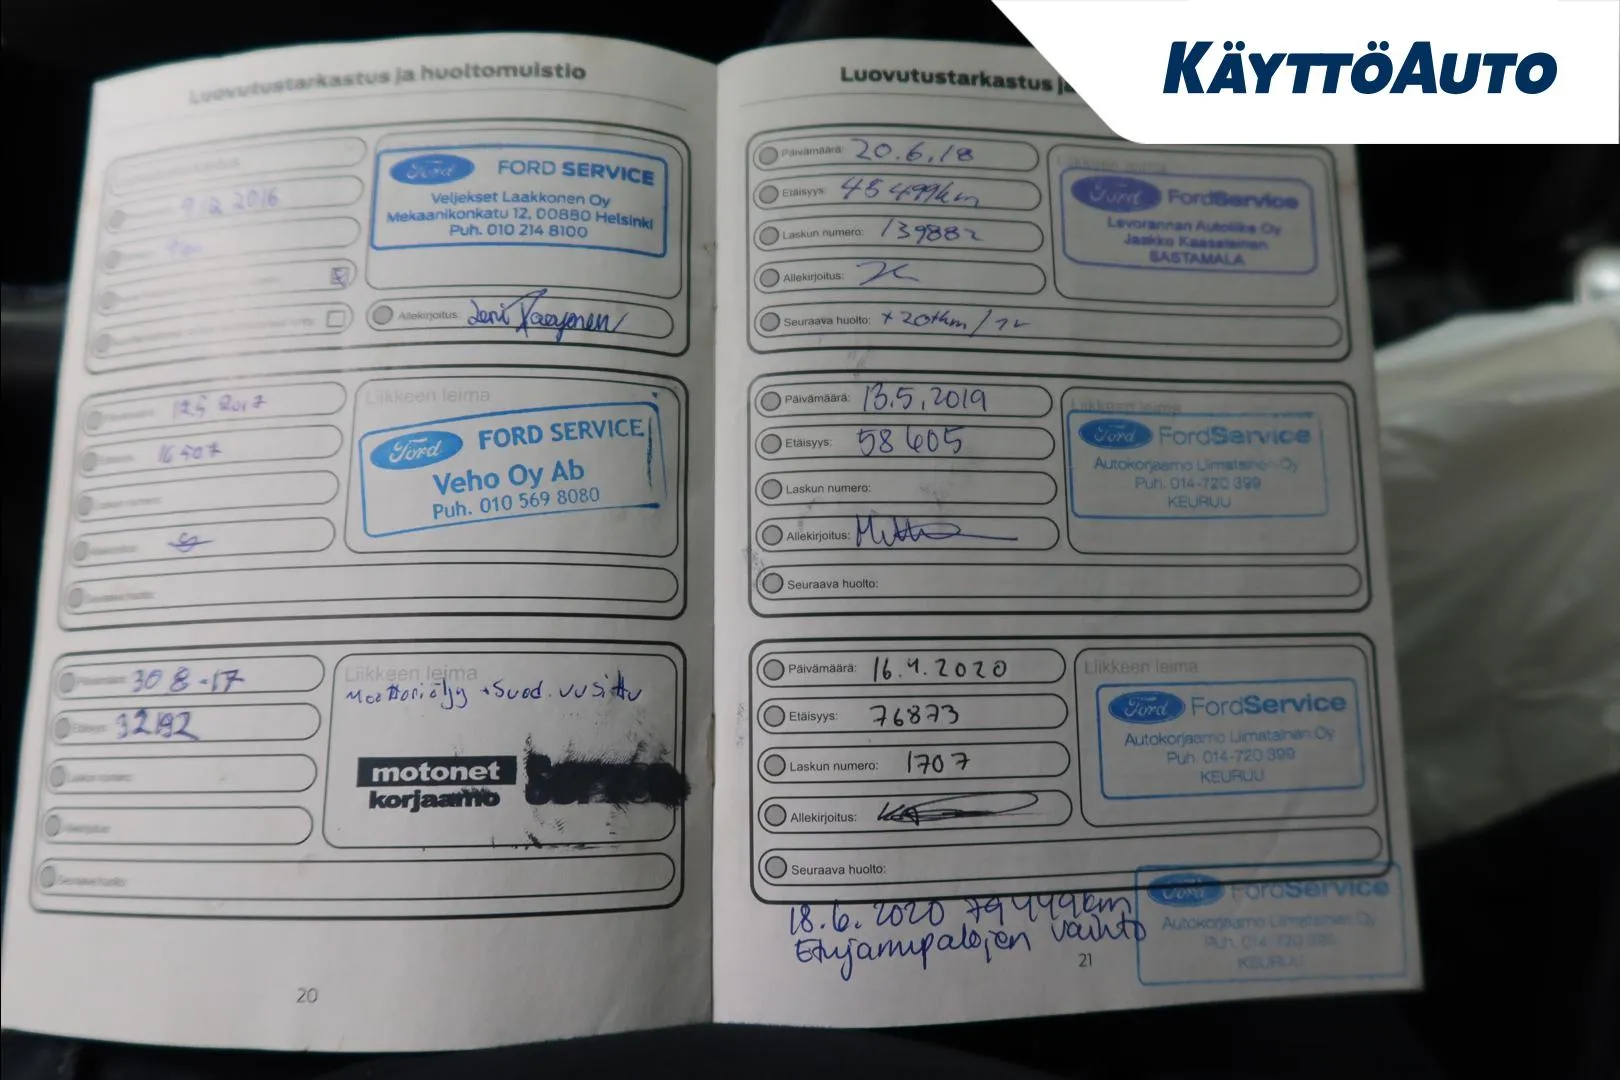 KÄYTTÖAUTO
Luovutustarkastus ja huoltomuistio
9.12.2016
Ford FORD SERVICE
Veljekset Laakkonen Oy
Mekaanikonkatu 12, 00880 Helsinki
Puh. 010 214 8100
Allekirjoitus:
12.5 2017
16507
Liikkeen leima
Ford FORD SERVICE
Veho Oy Ab
Puh. 010 569 8080
Seuraava huolto:
30 8-17
32192
Liikkeen leima
Moottoriöljy + Suod. vusittu
motonet
korjaamo
Seuraava huolto:
20
Luovutustarkastus
Päivämäärä: 20.6.18
Etäisyys: 45499km
Laskun numero: 139882
Allekirjoitus:
Seuraava huolto: +20tkm/1v
Liikkeen leima
Ford FordService
Levorannan Autoliike Oy
Jaakko Kaasalainen
SASTAMALA
Päivämäärä: 13.5.2019
Etäisyys: 58605
Laskun numero:
Allekirjoitus:
Seuraava huolto:
Liikkeen leima
Ford FordService
Autokorjaamo Liimatainen Oy
Puh. 014-720 399
KEURUU
Päivämäärä: 16.4.2020
Etäisyys: 76873
Laskun numero: 1707
Allekirjoitus:
Seuraava huolto:
Liikkeen leima
Ford FordService
Autokorjaamo Liimatainen Oy
Puh. 014-720 399
KEURUU
18.6.2020 79449km
Etujarrupalojen vaihto
Ford FordService
Autokorjaamo Liimatainen Oy
Puh. 014-720 399
KEURUU
21